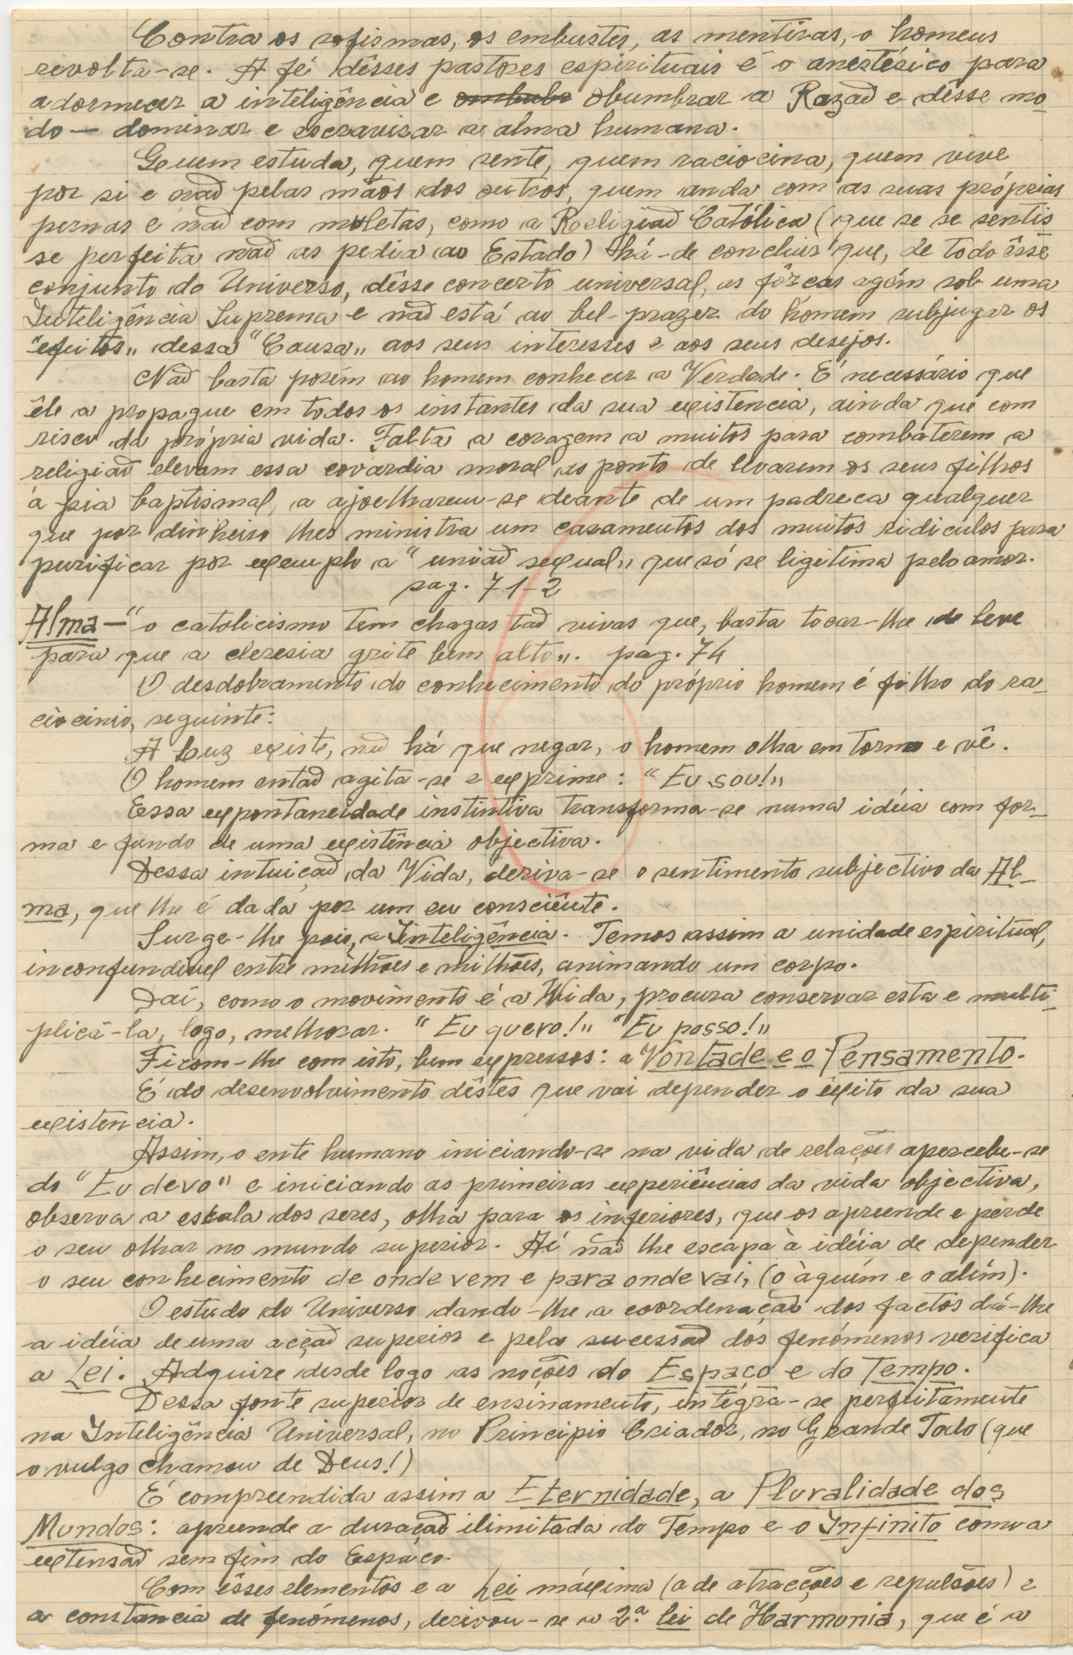 Contra os sofismas, os embustes, as mentiras, o homem
revolta-se. A fé dêsses pastores espirituais é o anestésico para
adormecer a inteligência e ombubr obumbrar a Razaõ e dêsse mo-
do — dominar e escravisar a alma humana.
Quem estuda, quem sente, quem raciocina, quem vive
por si e naõ pelas mãos dos outros, quem anda com as suas próprias
pernas e naõ com muletas, como a Religiaõ Católica (que se se sentis
se perfeita naõ as pedia ao Estado) há-de concluir que, de todo êsse
conjunto do Universo, dêsse concerto universal, as fôrças agém sob uma
Inteligência Suprema e naõ está ao bel-prazer do homem subjugar os
"efeitos„ dessa "Causa„ aos seus interesses e aos seus desejos.
Naõ basta porém ao homem conhecer a Verdade. É necessário que
êle a propague em todos os instantes da sua existencia, ainda que com
risco da própria vida. Falta a coragem a muitos para combatêrem a
religiaõ elevam essa covardia moral ao ponto de levarem os seus filhos
á pia baptismal, a ajoelharem-se deante de um padreca qualquer
que por dinheiro lhes ministra um casamentos dos muitos ridiculos para
purificar por exemplo a "uniaõ sexual„ que só se ligitima pelo amor.
pag. 71-2
Alma — "o catolicismo tem chagas taõ vivas que, basta tocar-lhe de leve
para que a cleresia grite bem alto„. pag. 74
O desdobramento do conhecimento do próprio homem é filho do ra-
ciocinio, seguinte:
A Luz existe, naõ há que negar, o homem olha em torno e vê.
O homem entaõ agita-se e exprime: "Eu sou!„
Essa expontaneidade instintiva transforma-se numa idéia com for-
ma e fundo de uma existência objectiva.
Dessa intuiçaõ da Vida, deriva-se o sentimento subjectivo da Al-
ma, que lhe é dada por um eu consciênte.
Surge-lhe pois, a Inteligência. Temos assim a unidade espiritual,
inconfundivel entre milhões e milhões, animando um corpo.
Daí, como o movimento é a Vida, procura conservar esta e multi-
plicá-la, logo, melhorar. "Eu quero!„ "Eu posso!„
Ficam-lhe com isto, bem expressos: a Vontade e o Pensamento.
É do desenvolvimento dêstes que vai depender o êxito da sua
existencia.
Assim, o ente humano iniciando-se na vida de relações apercebe-se
do "Eu devo" e iniciando as primeiras experiências da vida objectiva,
observa a escala dos seres, olha para os inferiores, que os apreende e perde
o seu olhar no mundo superior. Aí naõ lhe escapa à idéia de depender
o seu conhecimento de onde vem e para onde vai, (o àquém e o além).
O estudo do Universo dando-lhe a coordenaçaõ dos factos dá-lhe
a idéia de uma acçaõ superior e pela sucessaõ dos fenómenos verifica
a Lei. Adquire desde logo as noções do Espaço e do Tempo.
Dessa fonte superior de ensinamento, integra-se perfeitamente
na Inteligência Universal, no Principio Criador, no Grande Todo (que
o vulgo chamou de Deus!)
É compreendida assim a Eternidade, a Pluralidade dos
Mundos: apreende a duraçaõ ilimitada do Tempo e o Infinito como a
extensaõ sem fim do Espaço.
Com êsses elementos e a Lei máxima (a de atracções e repulsões) e
a constancia de fenómenos, derivou-se a 2.ª lei de Harmonia, que é a